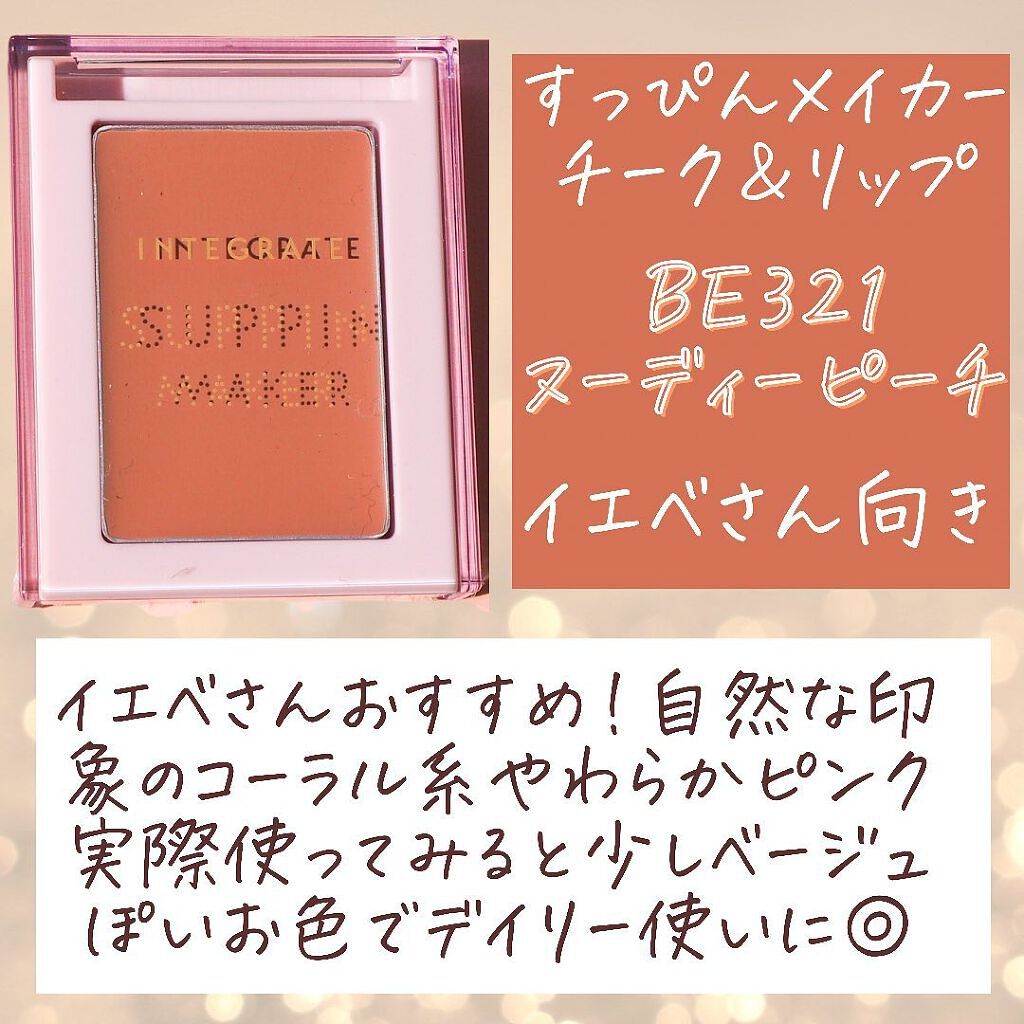 INTEGRATE
SUPPIN
MAKER
すっぴんメイカー
チーク&リップ
BE321
ヌーディーピーチ
イエベさん向き
イエベさんおすすめ!自然な印
象のコーラル系やわらかピンク
実際使ってみると少しベージュ
ぽいお色でデイリー使いに◎